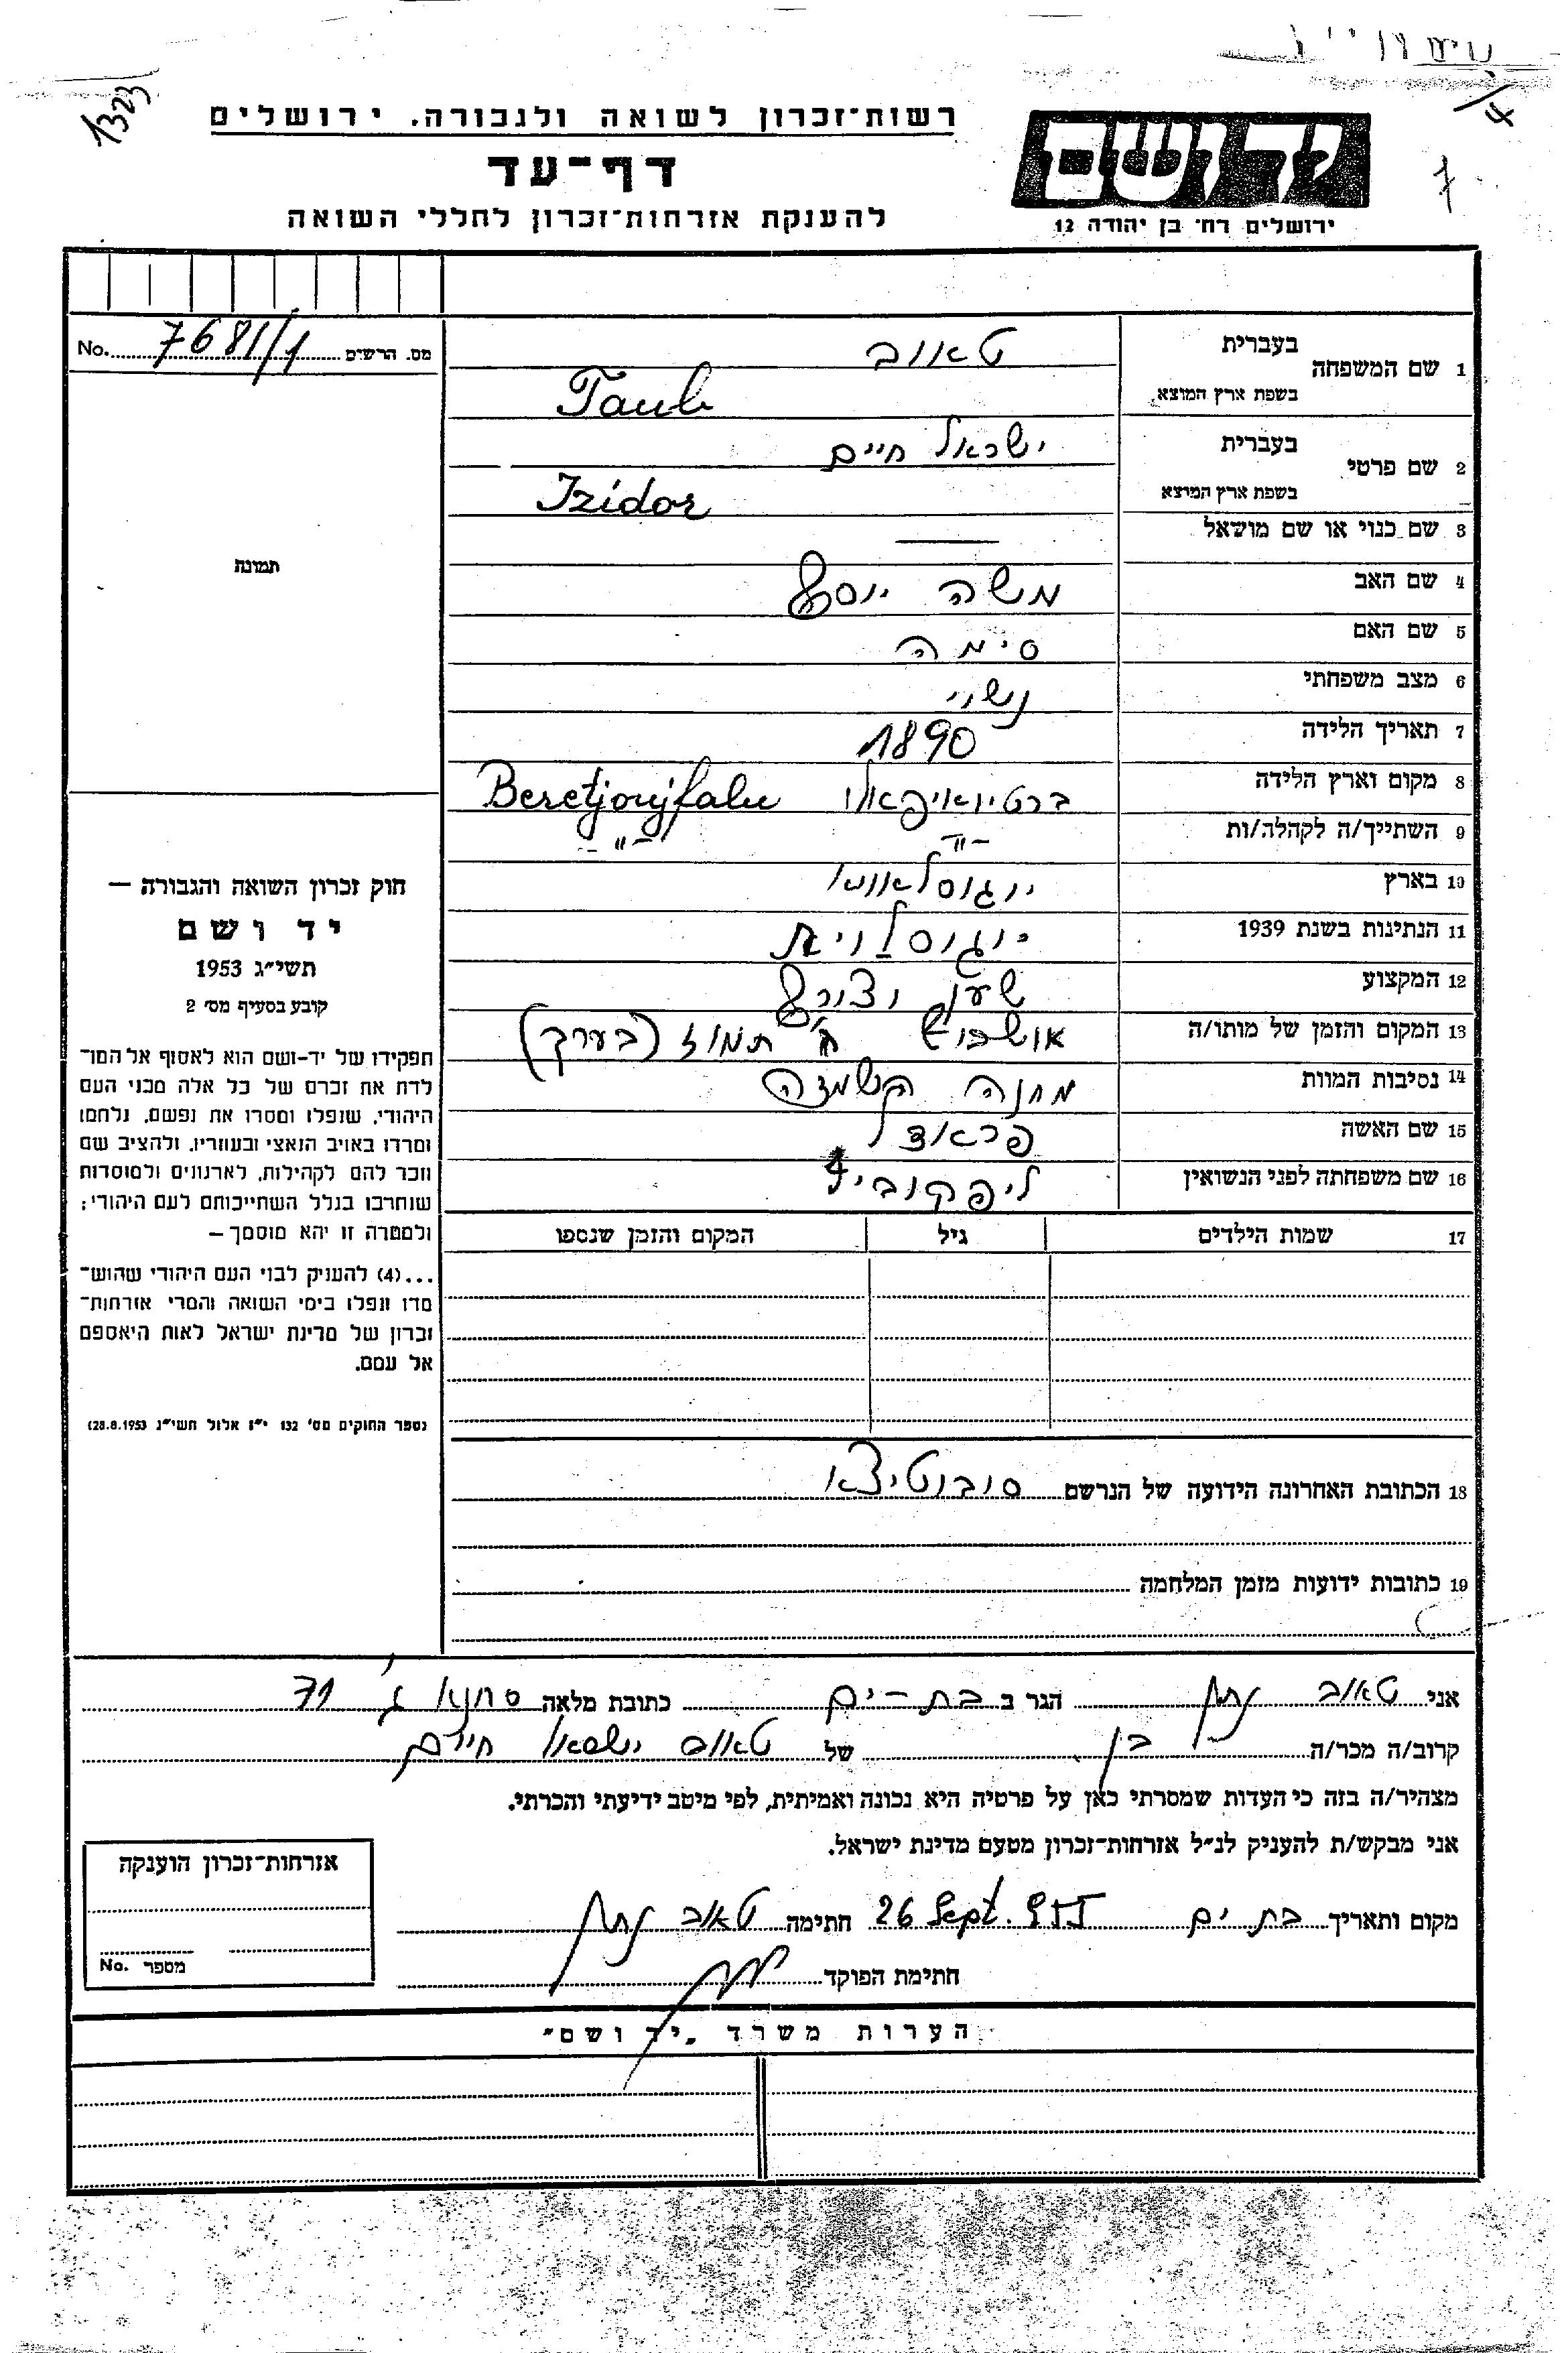 1323
רשות־זכרון לשואה ולגבורה. ירושלים
דף־עד
להענקת אזרחות־זכרון לחללי השואה
יד ושם
ירושלים רח׳ בן יהודה 12
מס. הרשים 7681/1 No.
תמונה
1 שם המשפחה בעברית טאוב
בשפת ארץ המוצא Taub
2 שם פרטי בעברית ישראל חיים
בשפת ארץ המוצא Izidor
3 שם כנוי או שם מושאל ——
4 שם האב משה יוסף
5 שם האם סימה
6 מצב משפחתי נשוי
7 תאריך הלידה 1890
8 מקום וארץ הלידה ברטיואויפאלו Beretjoujfalu
9 השתייך/ה לקהלה/ות -"- -"-
10 בארץ
11 הנתינות בשנת 1939 יוגוסלוית
12 המקצוע שען וצורף
13 המקום והזמן של מותו/ה תמוז (בערך)
14 נסיבות המוות מחנה השמדה
15 שם האשה
16 שם משפחתה לפני הנשואין
17 שמות הילדים גיל המקום והזמן שנספו
חוק זכרון השואה והגבורה —
יד ושם
תשי״ג 1953
קובע בסעיף מס׳ 2
תפקידו של יד-ושם הוא לאסוף אל המו־
לדת את זכרם של כל אלה מבני העם
היהודי, שנפלו ומסרו את נפשם, נלחמו
ומרדו באויב הנאצי ובעוזריו, ולהציב שם
וזכר להם לקהילות, לארגונים ולמוסדות
שנחרבו בגלל השתייכותם לעם היהודי;
ולמטרה זו יהא מוסמך —
...(4) להעניק לבני העם היהודי שהוש־
מדו ונפלו בימי השואה והמרי אזרחות־
זכרון של מדינת ישראל לאות היאספם
אל עמם.
(ספר החוקים מס׳ 132 י״ז אלול תשי״ג 28.8.1953)
18 הכתובת האחרונה הידועה של הנרשם סובוטיצא
19 כתובות ידועות מזמן המלחמה
אני טאוב נתן הגר ב בת-ים כתובת מלאה
קרוב/ה מכר/ה בן של טאוב ישראל חיים
מצהיר/ה בזה כי העדות שמסרתי כאן על פרטיה היא נכונה ואמיתית, לפי מיטב ידיעתי והכרתי.
אני מבקש/ת להעניק לנ״ל אזרחות־זכרון מטעם מדינת ישראל.
מקום ותאריך בת ים 26 Sept. 955 חתימה טאוב נתן
חתימת הפוקד
אזרחות־זכרון הוענקה
מספר No.
הערות משרד „יד ושם"